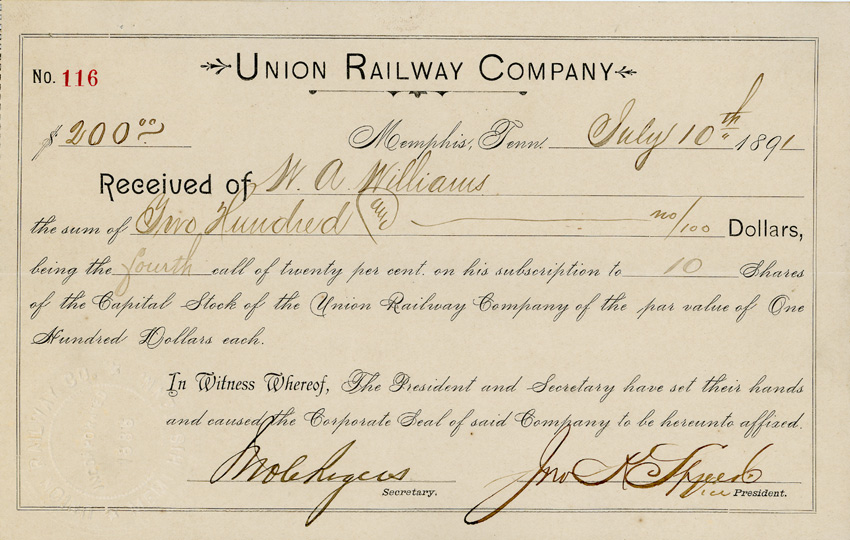 UNION RAILWAY COMPANY
No. 116
$ 200 00 Memphis, Tenn. July 10th 1891
Received of W. A. Williams
the sum of Two Hundred and no/100 Dollars,
being the fourth call of twenty per cent. on his subscription to 10 Shares
of the Capital Stock of the Union Railway Company of the par value of One
Hundred Dollars each.
In Witness Whereof, The President and Secretary have set their hands
and caused the Corporate Seal of said Company to be hereunto affixed.
Jno K Speed
Secretary. Vice President.